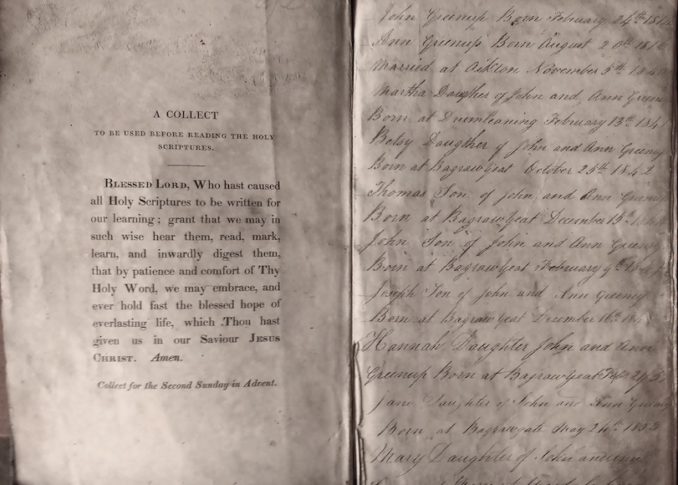 A COLLECT
TO BE USED BEFORE READING THE HOLY
SCRIPTURES.
BLESSED LORD, Who hast caused
all Holy Scriptures to be written for
our learning; grant that we may in
such wise hear them, read, mark,
learn, and inwardly digest them,
that by patience and comfort of Thy
Holy Word, we may embrace, and
ever hold fast the blessed hope of
everlasting life, which Thou hast
given us in our Saviour JESUS
CHRIST. Amen.
Collect for the Second Sunday in Advent.
John Greenup Born February 24th
Ann Greenup Born August
Married at Aikton November 5th
Martha Daugther of John and Ann
Born at Drumleaning February 13th
Betsy Daugther of John and Ann
Born at Bagrawgeat October 25th 1842
Thomas Son of John and Ann
Born at Bagrawgeat December
John Son of John and Ann
Born at Bagrawgeat February 9th
Joseph Son of John and Ann
Born at Bagrawgeat December 16th
Hannah Daughter John and Ann
Greenup Born at Bagrawgeat
Jane Daughter of John and Ann
Born at Bagrawgate May 24th
Mary Daughter of John and Ann